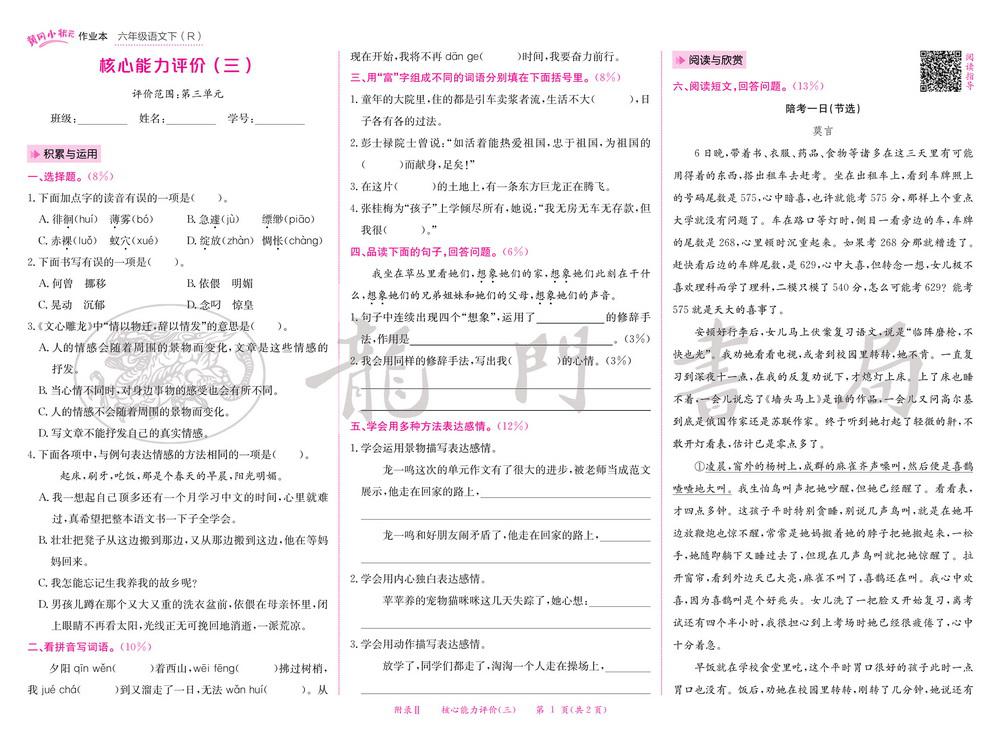 黄冈小状元 作业本 六年级语文下（R）
核心能力评价（三）
评价范围：第三单元
班级：________ 姓名：________ 学号：________
积累与运用
一、选择题。（8%）
1. 下面加点字的读音有误的一项是（　　）。
A. 徘徊(huí)　薄雾(bó)　B. 急遽(jù)　缥缈(piāo)
C. 赤裸(luǒ)　蚁穴(xué)　D. 绽放(zhàn)　惆怅(chàng)
2. 下面书写有误的一项是（　　）。
A. 何曾　挪移　B. 依偎　明媚
C. 晃动　沉郁　D. 念叼　惊皇
3.《文心雕龙》中“情以物迁，辞以情发”的意思是（　　）。
A. 人的情感会随着周围的景物而变化，文章是这些情感的
抒发。
B. 当心情不同时，对身边事物的感受也会有所不同。
C. 人的情感不会随着周围的景物而变化。
D. 写文章不能抒发自己的真实情感。
4. 下面各项中，与例句表达情感的方法相同的一项是（　　）。
起床，刷牙，吃饭，那是个春天的早晨，阳光明媚。
A. 我一想起自己顶多还有一个月学习中文的时间，心里就难
过，真希望把整本语文书一下子全学会。
B. 壮壮把凳子从这边搬到那边，又从那边搬到这边，他在等妈
妈回来。
C. 我怎能忘记生我养我的故乡呢？
D. 男孩儿蹲在那个又大又重的洗衣盆前，依偎在母亲怀里，闭
上眼睛不再看太阳，光线正无可挽回地消逝，一派荒凉。
二、看拼音写词语。（10%）
夕阳 qīn wěn（　　）着西山，wēi fēng（　　）拂过树梢，
我 jué chá（　　）到又溜走了一日，无法 wǎn huí（　　）。从
现在开始，我将不再 dān ge（　　）时间，我要奋力前行。
三、用“富”字组成不同的词语分别填在下面括号里。（8%）
1. 童年的大院里，住的都是引车卖浆者流，生活不大（　　），日
子各有各的过法。
2. 彭士禄院士曾说：“如活着能热爱祖国，忠于祖国，为祖国的
（　　）而献身，足矣！”
3. 在这片（　　）的土地上，有一条东方巨龙正在腾飞。
4. 张桂梅为“孩子”上学倾尽所有，她说：“我无房无车无存款，但
我很（　　）。”
四、品读下面的句子，回答问题。（6%）
我坐在草丛里看她们，想象她们的家，想象她们此刻在干什
么，想象她们的兄弟姐妹和她们的父母，想象她们的声音。
1. 句子中连续出现四个“想象”，运用了____________的修辞手
法，作用是____________________________________。（3%）
2. 我会用同样的修辞手法，写出我（　　）的心情。（3%）
五、学会用多种方法表达感情。（12%）
1. 学会运用景物描写表达感情。
龙一鸣这次的单元作文有了很大的进步，被老师当成范文
展示，他走在回家的路上，____________________________
龙一鸣和好朋友闹矛盾了，他走在回家的路上，________
2. 学会用内心独白表达感情。
苹苹养的宠物猫咪咪这几天失踪了，她心想：__________
3. 学会用动作描写表达感情。
放学了，同学们都走了，淘淘一个人走在操场上，________
阅读与欣赏
阅读指导
六、阅读短文，回答问题。（13%）
陪考一日（节选）
莫言
6日晚，带着书、衣服、药品、食物等诸多在这三天里有可能
用得着的东西，搭出租车去赶考。坐在出租车上，看到车牌照上
的号码尾数是575，心中暗喜，也许就能考575分，那样上个重点
大学就没有问题了。车在路口等灯时，侧目一看旁边的车，车牌
的尾数是268，心里顿时沉重起来。如果考268分那就糟透了。
赶快看后边的车牌尾数，是629，心中大喜，但转念一想，女儿极不
喜欢理科而学了理科，二模只模了540分，怎么可能考629？能考
575就是天大的喜事了。
安顿好行李后，女儿马上伏案复习语文，说是“临阵磨枪，不
快也光”。我劝她看看电视，或者到校园里转转，她不肯。一直复
习到深夜十一点，在我的反复劝说下，才熄灯上床。上了床也睡
不着，一会儿说忘了《墙头马上》是谁的作品，一会儿又问高尔基
到底是俄国作家还是苏联作家。终于听到她打起了轻微的鼾，不
敢开灯看表，估计已是零点多了。
①凌晨，窗外的杨树上，成群的麻雀齐声噪叫，然后便是喜鹊
喳喳地大叫。我生怕鸟叫声把她吵醒，但她已经醒了。看看表，
才四点多钟。这孩子平时特别贪睡，别说几声鸟叫，就是在她耳
边放鞭炮也惊不醒，常常是她妈搬着她的脖子把她搬起来，一松
手，她随即躺下又睡过去了，但现在几声鸟叫就把她惊醒了。拉
开窗帘，看到外边天已大亮，麻雀不叫了，喜鹊还在叫。我心中欢
喜，因为喜鹊叫是个好兆头。女儿洗了一把脸又开始复习，离考
试还有四个半小时，我很担心到上考场时她已经很疲倦了，心中
十分着急。
早饭就在学校食堂里吃，这个平时胃口很好的孩子此时一点
胃口也没有。饭后，劝她在校园里转转，刚转了几分钟，她说还有
附录Ⅱ　核心能力评价（三）　第 1 页（共 2 页）
龍門書局